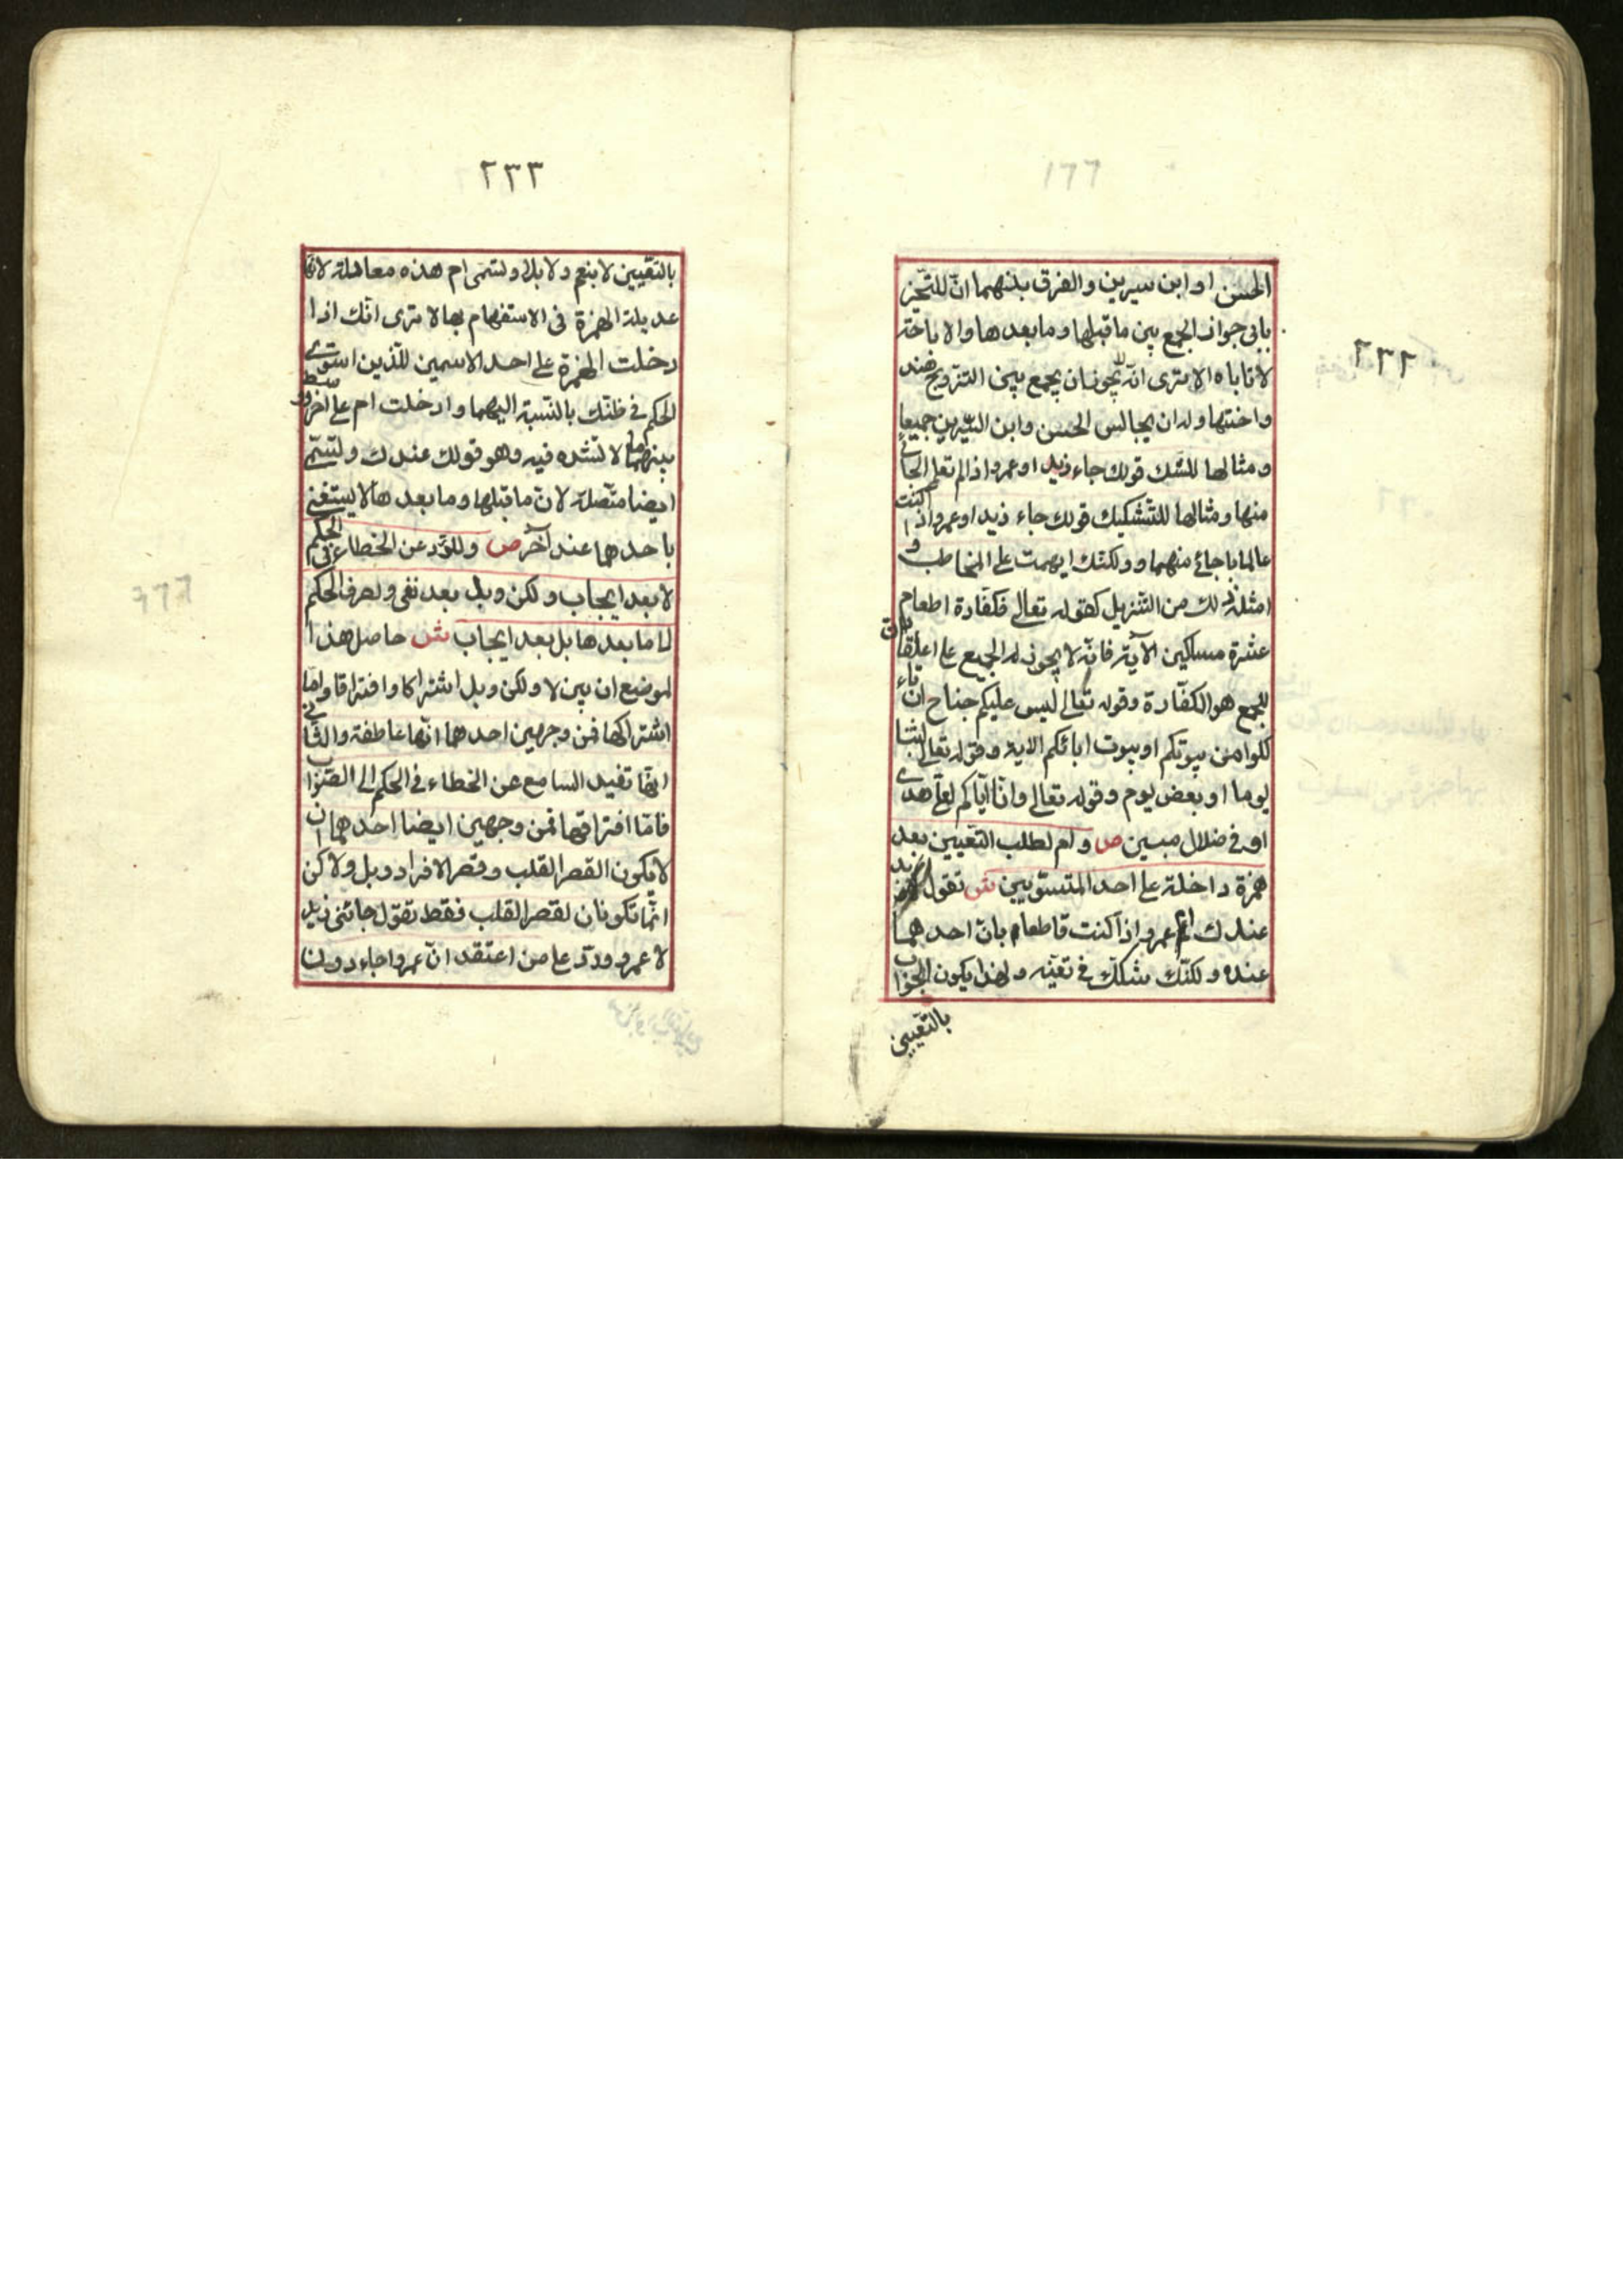 ٢٣٢
الحسن او ابن سيرين والفرق بينهما انّ للتّخيّر
يابى جواز الجمع بين ما قبلها وما بعدها والاباحة
لا تاباه الا ترى انّه لا يجوز ان يجمع بين التزويج هند
واختها وله ان يجالس الحسن وابن السّيرين جميعا
ومثالها للشك قولك جاء زيد او عمرو اذا لم تعلم الجائى
منها ومثالها للتشكيك قولك جاء زيد او عمرو اذا كنت
عالما باجائ منهما وولكنّك ابهمت على المخاطب و
امثلة ذلك من التّنزيل كقوله تعالى فكفّارة اطعام
عشرة مساكين الآية فانّه لا يجوز له الجميع على اعتقاد انّ
الجمع هو الكفّارة وقوله تعالى ليس عليكم جناح ان تاء
كلوا من بيوتكم او بيوت ابائكم الاية وقوله تعالى لبثنا
يوما او بعض يوم وقوله تعالى وانّا ايّاكم لعلى هدى
او فى ضلال مبين ص وام لطلب التّعيين بعد
همزة داخلة على احد المتسوّيين ش تقول ازيد
عندك ام عمرو اذا كنت قاطعا بانّ احدهما
عنده ولكنّك شكك فى تعيّنه ولهذا يكون الجواب
بالتّعيين
٢٣٣
بالتّعيين لا بنعم ولا بلا ولتسمى ام هذه معادلة لانّها
عديلة الهمزة فى الاستفهام بها الا ترى انّك اذا
دخلت الهمزة على احد الاسمين للّذين استوى
الحكم فى ظنّك بالنّسبة اليهما وادخلت ام على اخر وسط
بينهما ما لا تشده فيه وهو قولك عندك ولتسمّى
ايضا متّصلة لانّ ما قبلها وما بعدها لا يستغنى
باحدهما عند آخر ص وللرّد عن الخطاء فى الحكم
لا بعد ايجاب ولكن وبل بعد نفى ولصرف الحكم
لى ما بعدها بل بعد ايجاب ش حاصل هذا
لموضع ان بين لا ولكن وبل اشتراكا وافتراقا وامّا
اشتراكها فمن وجهين احدهما انّها عاطفة والثّانى
انّها تفيد السامع عن الخطاء فى الحكم الى الصّواب
فامّا افتراقها فمن وجهين ايضا احدهما ان
لا يكون القصر القلب وقصر الافراد وبل ولاكن
انّما تكونان لقصر القلب فقط تقول جائنى زيد
لا عمرو وردّ على من اعتقد انّ عمروا جاء دون